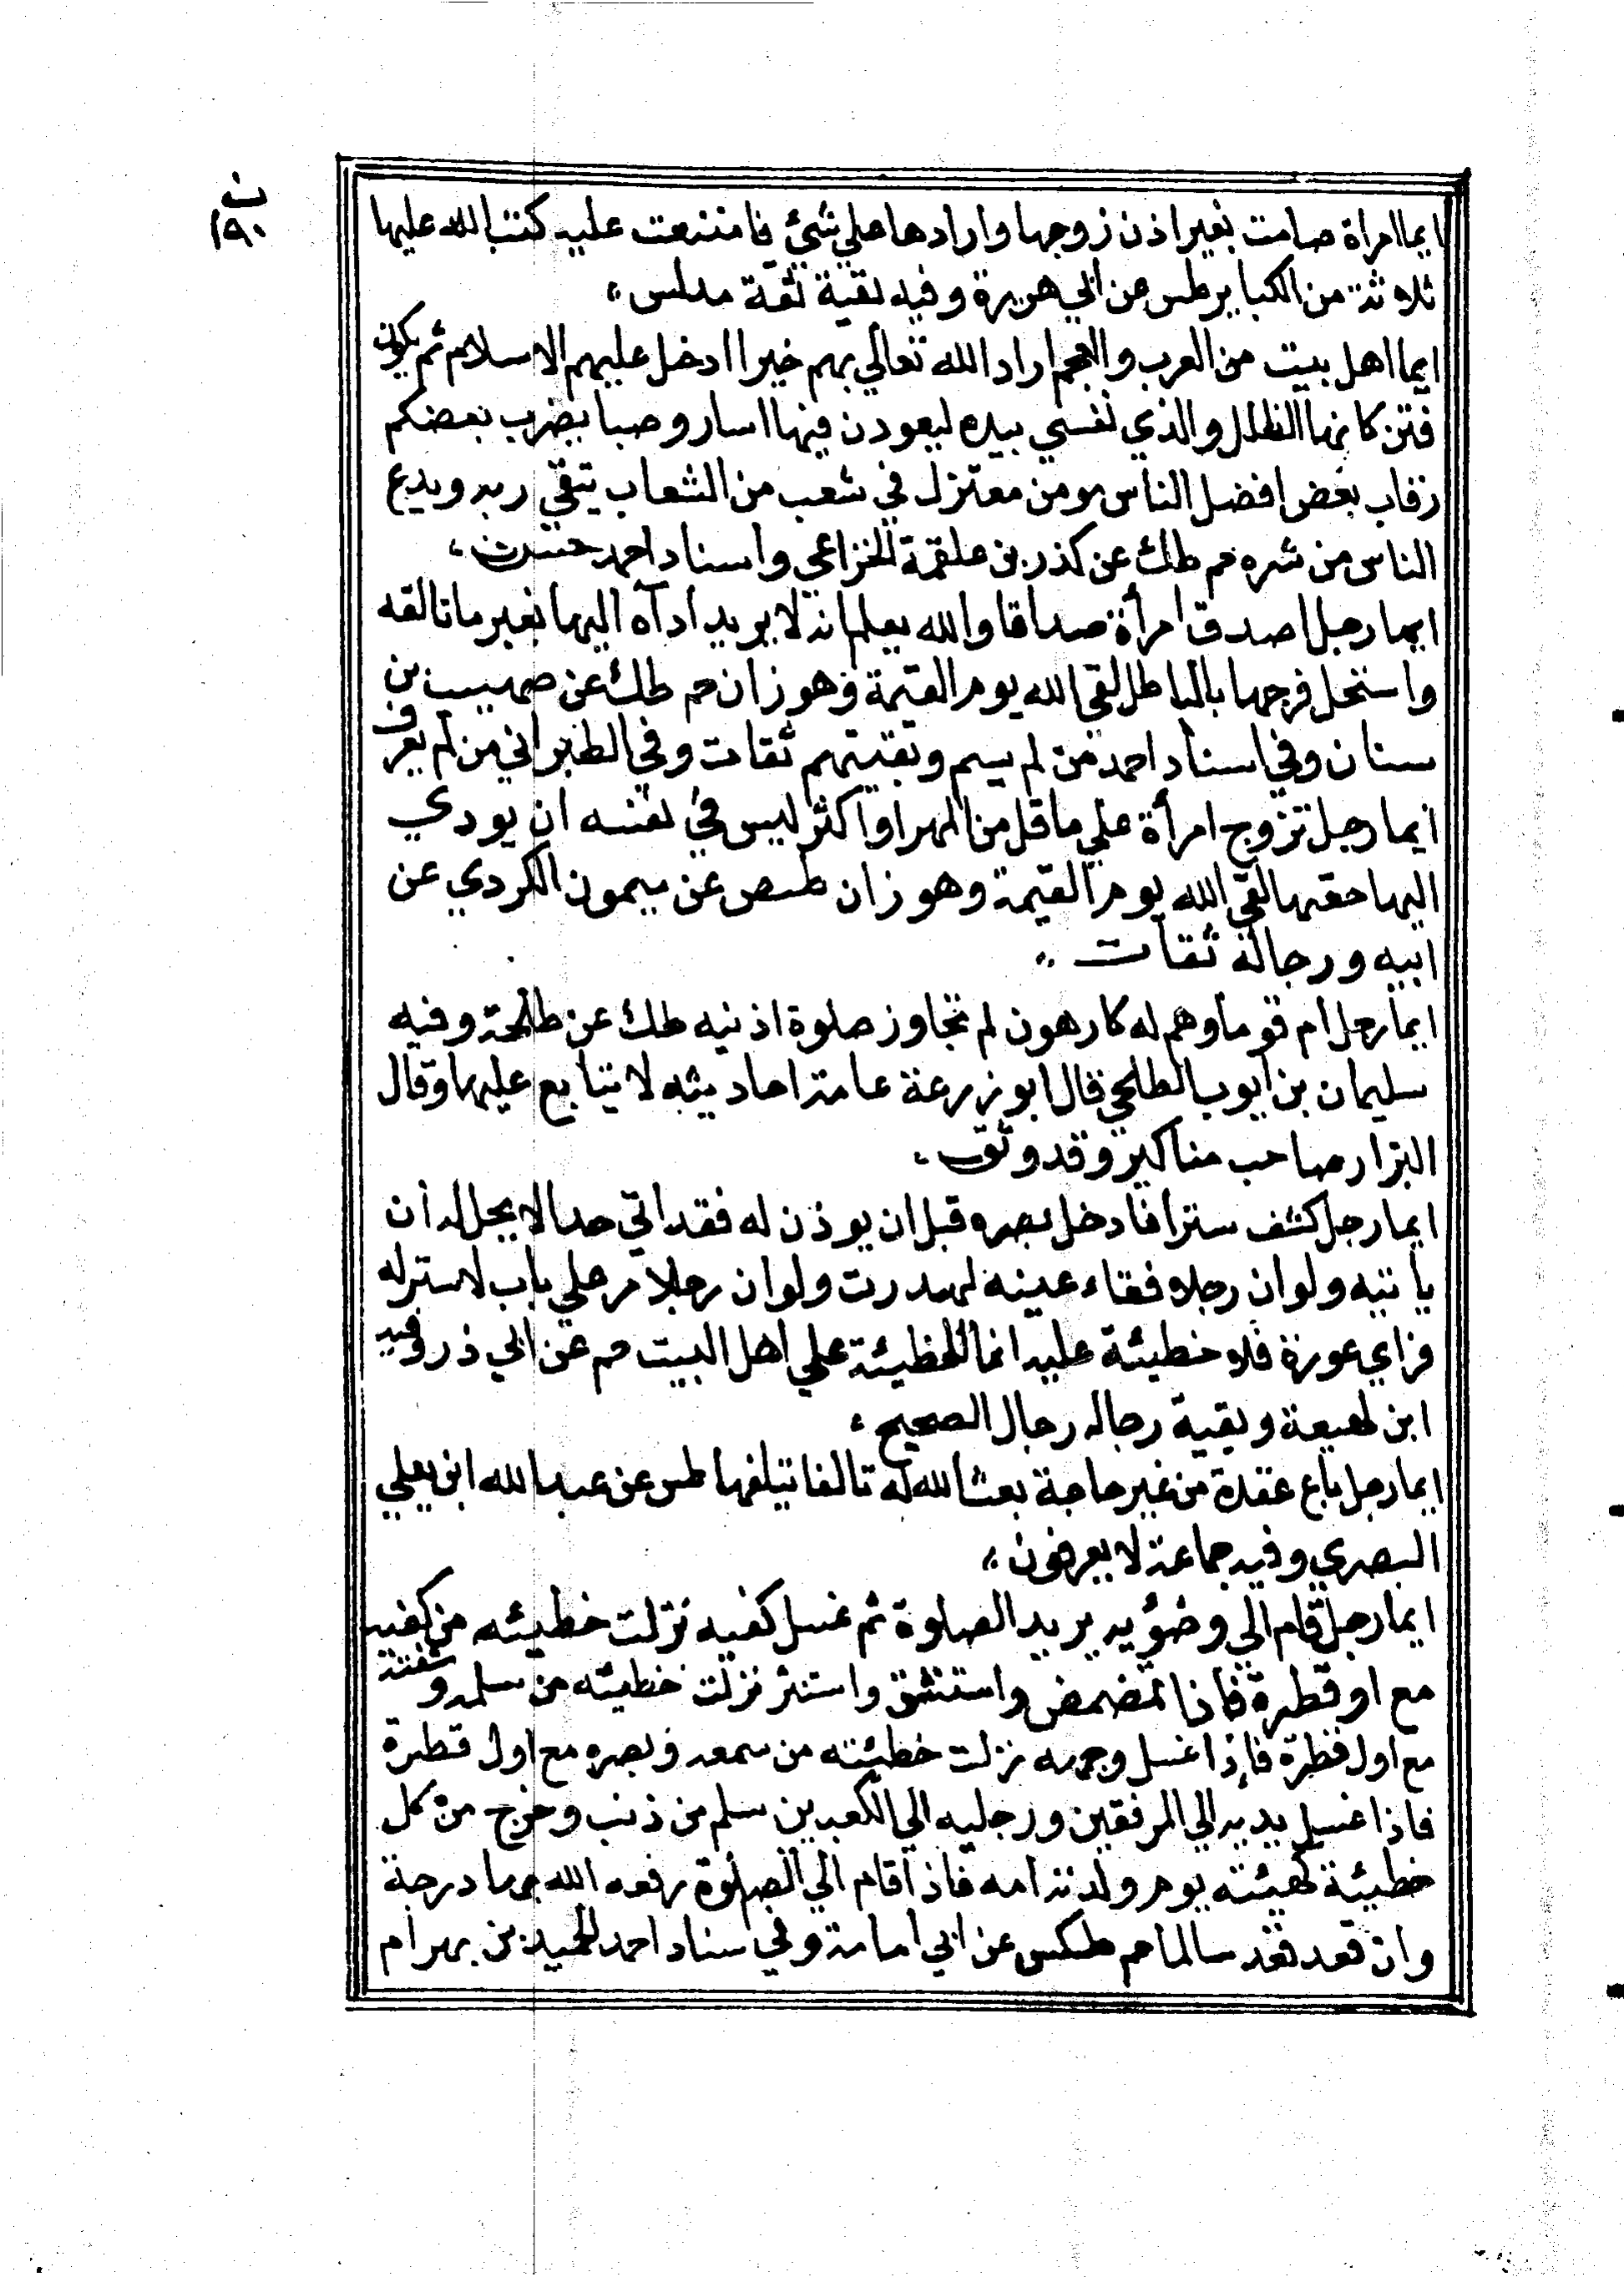 ن
١٩٠
ايما امراة صامت بغير اذن زوجها وارادها علي شئ فامتنعت عليه كتب الله عليها
ثلاثة من الكباير طس عن ابي هريرة وفيه بقية ثقة مدلس
ايما اهل بيت من العرب والعجم اراد الله تعالي بهم خيرا ادخل عليهم الاسلام ثم يكون
فتن كانها الظلل والذي نفسي بيده ليعودن فيها اساور صبا يضرب بعضكم
رقاب بعض افضل الناس مومن معتزل في شعب من الشعاب يتقي ربه ويدع
الناس من شره حم طك عن كذر بن علقمة الخزاعي واسناد احمد حسن
ايما رجل اصدق امرأة صداقا والله يعلم انه لا يريد ادآه اليها فغير ما تالقه
واستحل فرجها بالباطل لقي الله يوم القيمة وهو زان حم طك عن صهيب بن
سنان وفي اسناد احمد من لم يسم وبقيتهم ثقات وفي الطبراني من لم يعرف
ايما رجل تزوج امرأة علي ما قل من المهر او اكثر ليس في نفسه ان يودي
اليها حقها لقي الله يوم القيمة وهو زان طسص عن ميمون الكردي عن
ابيه ورجاله ثقات
ايما رجل ام قوما وهم له كارهون لم تجاوز صلوة اذنيه طك عن طلحة وفيه
سليمان بن ايوب الطلحي قال ابو زرعة عامة احاديثه لا يتابع عليها وقال
البزار صاحب مناكير وقد وثق
ايما رجل كشف سترا فادخل بصره قبل ان يوذن له فقد اتي حدا لا يحل له أن
يأتيه ولو ان رجلا فقاء عينه لهدرت ولو ان رجلا مر علي باب لا ستر له
فراي عورة فلا خطيئة عليه انما الخطيئة علي اهل البيت حم عن ابي ذر وفيه
ابن لهيعة وبقية رجاله رجال الصحيح
ايما رجل باع عقدة من غير حاجة بعث الله له تالفا يتلفها طس عن عبد الله ابن يعلي
البصري وفيه جماعة لا يعرفون
ايما رجل قام الي وضوئه يريد الصلوة ثم غسل كفيه نزلت خطيئه من كفيه
مع او قطرة فاذا تمضمض واستنشق واستنثر نزلت خطيئه من سلمه وشفتة
مع اول قطرة فإذا غسل وجهه نزلت خطيئته من سمعه وبصره مع اول قطرة
فاذا غسل يديه الي المرفقين ورجليه الي الكعبين سلم من ذنب وخرج من كل
خطيئة كهيئته يوم ولدته امه فاذا قام الي الصلوة رفعه الله بها درجة
وان قعد قعد سالما حم طكس عن ابي امامة وفي سناد احمد الحميد بن بهرام